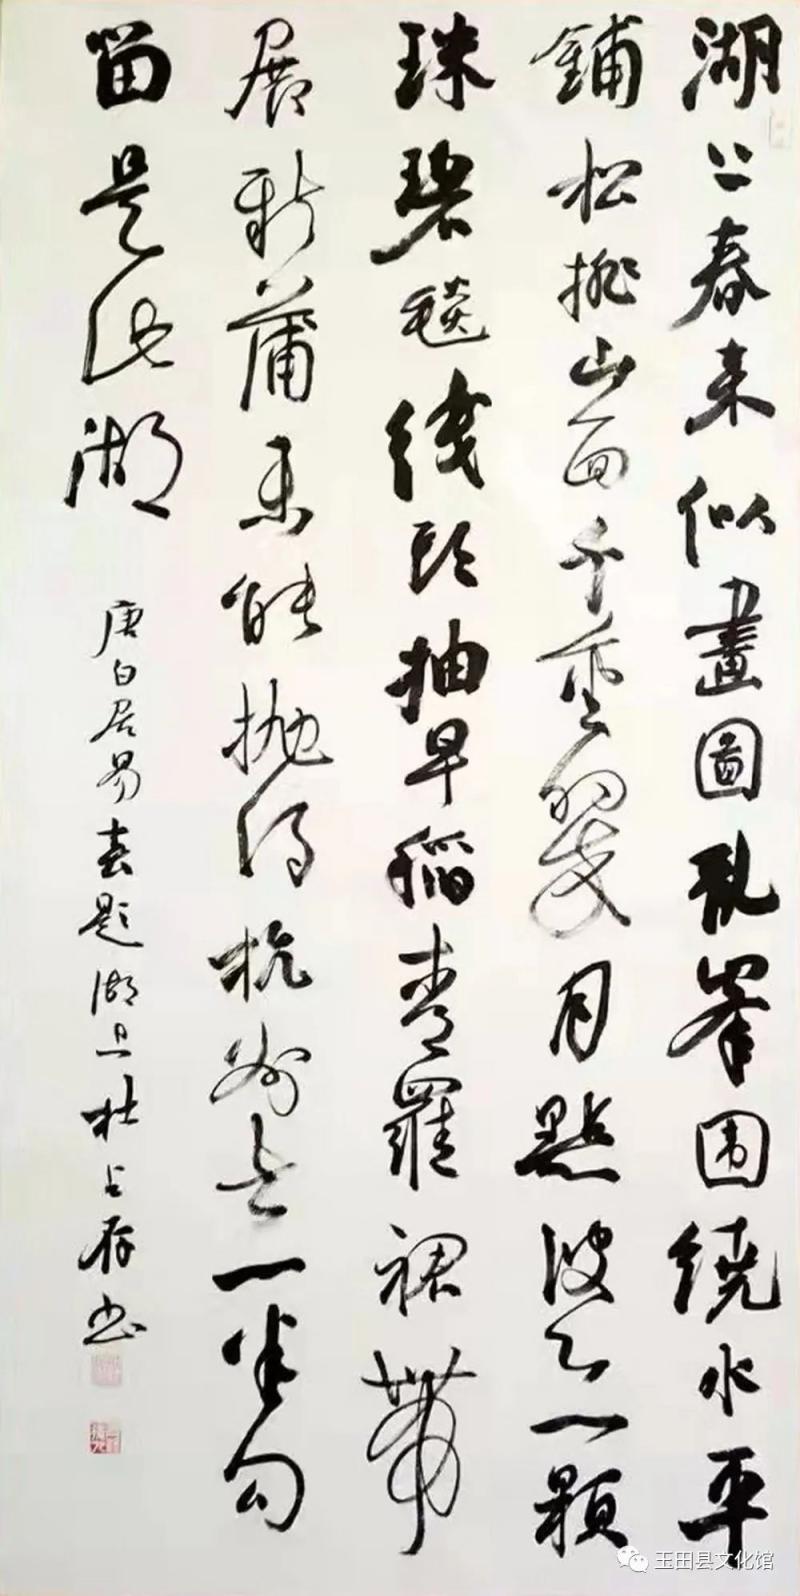 湖上春来似畫圖乱峯围绕水平
鋪松排山面千重翠月點波心一顆
珠碧毯綫头抽早稻青羅裙帶
展新蒲未能抛得杭州去一半勾
留是此湖
唐白居易春题湖上杜占存书
玉田县文化馆